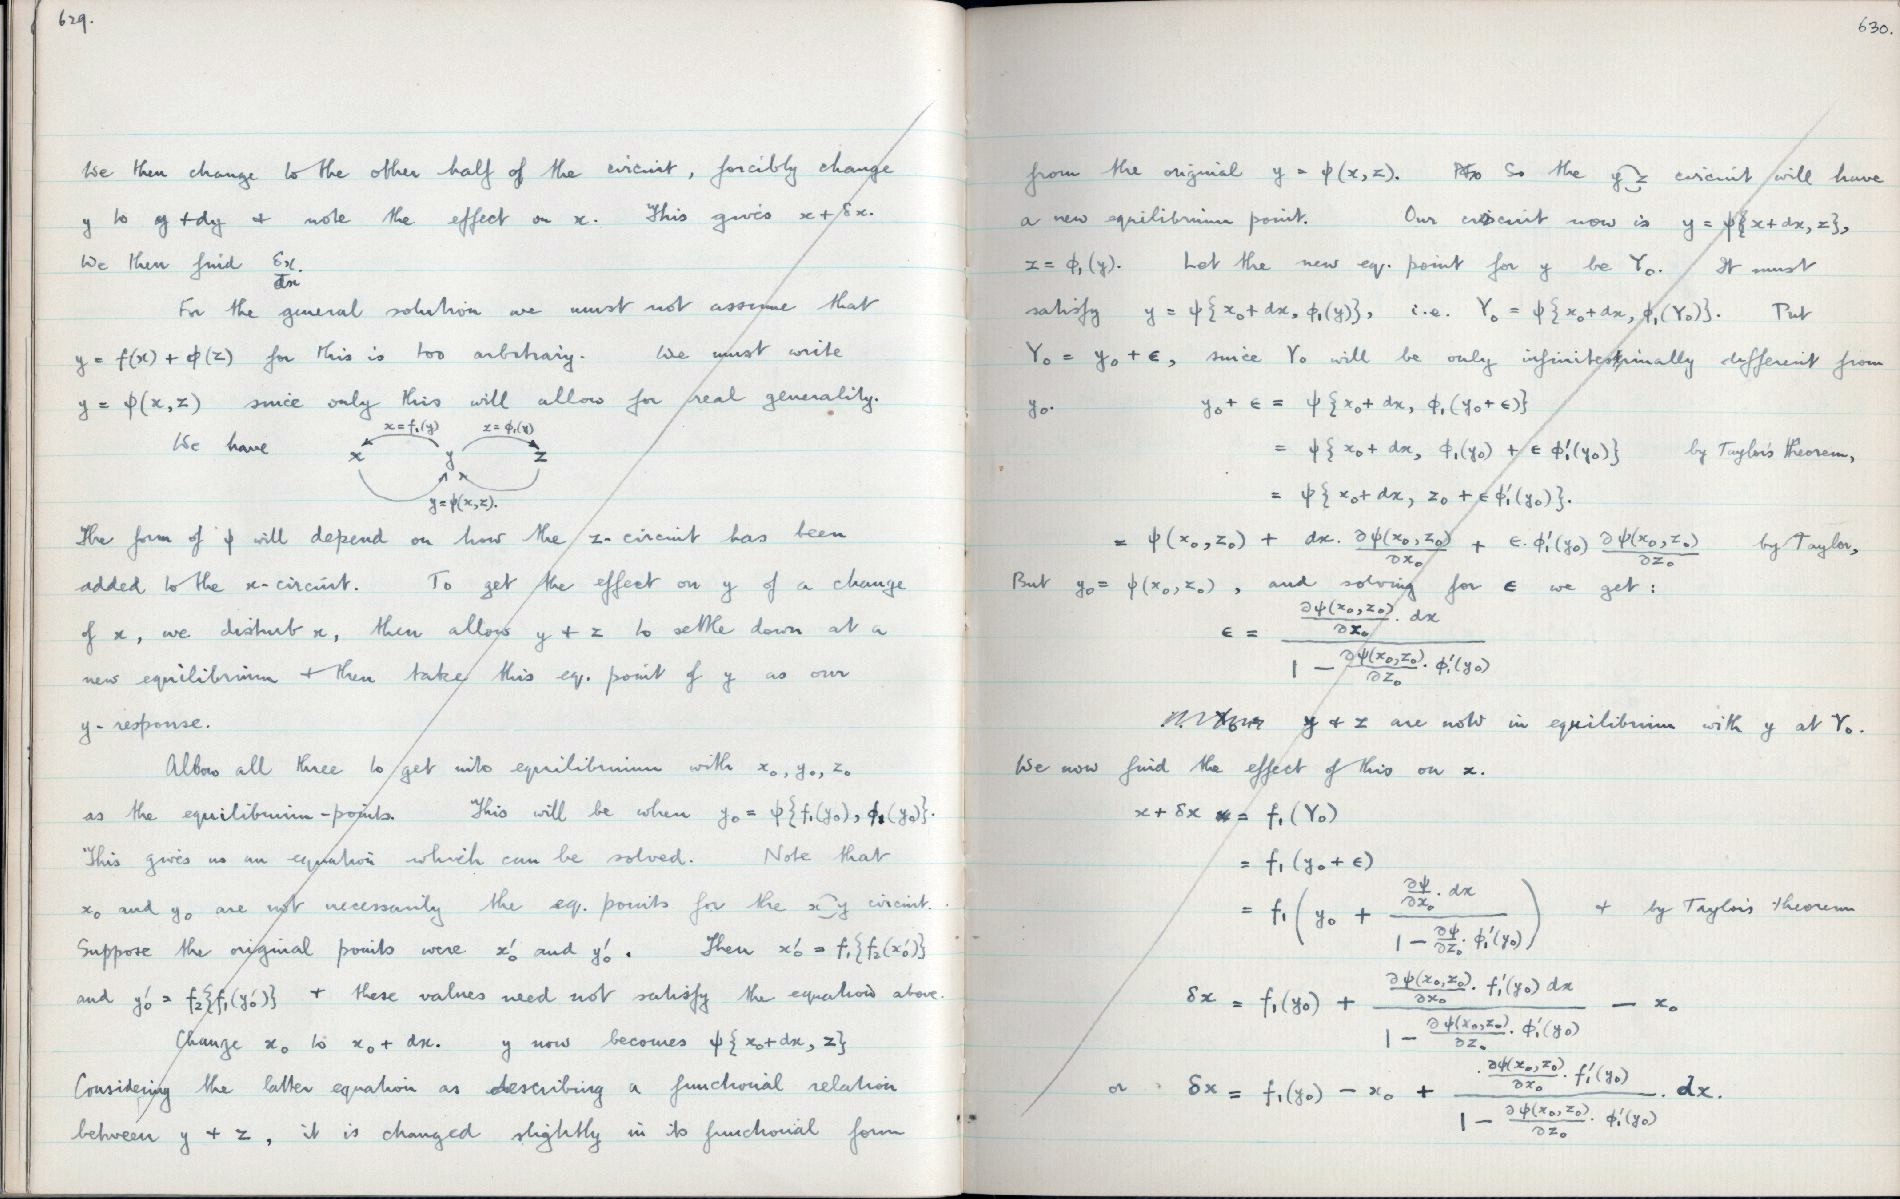 629.
We then change to the other half of the circuit, forcibly change
y to y + dy + note the effect on x. This gives x + δx.
We then find δx/dx.
For the general solution we must not assume that
y = f(x) + ϕ(z) for this is too arbitrary. We must write
y = ψ(x, z) since only this will allow for real generality.
We have
x = f₁(y) z = ϕ₁(y)
x y z
y = ψ(x, z).
The form of ψ will depend on how the z-circuit has been
added to the x-circuit. To get the effect on y of a change
of x, we disturb x, then allow y + z to settle down at a
new equilibrium + then take this eq. point of y as our
y-response.
Allow all three to get into equilibrium with x₀, y₀, z₀
as the equilibrium-points. This will be when y₀ = ψ{f₁(y₀), ϕ₁(y₀)}.
This gives us an equation which can be solved. Note that
x₀ and y₀ are not necessarily the eq. points for the x y circuit.
Suppose the original points were x₀′ and y₀′. Then x₀′ = f₁{f₂(x₀′)}
and y₀′ = f₂{f₁(y₀′)} + these values need not satisfy the equation above.
Change x₀ to x₀ + dx. y now becomes ψ{x₀+dx, z}
Considering the latter equation as describing a functional relation
between y + z, it is changed slightly in its functional form
630.
from the original y = ψ(x, z). So the y z circuit will have
a new equilibrium point. Our circuit now is y = ψ{x+dx, z},
z = ϕ₁(y). Let the new eq. point for y be Y₀. It must
satisfy y = ψ{x₀+dx, ϕ₁(y)}, i.e. Y₀ = ψ{x₀+dx, ϕ₁(Y₀)}. Put
Y₀ = y₀ + ϵ, since Y₀ will be only infinitesimally different from
y₀. y₀ + ϵ = ψ{x₀+dx, ϕ₁(y₀+ϵ)}
= ψ{x₀+dx, ϕ₁(y₀) + ϵ ϕ₁′(y₀)} by Taylor's theorem,
= ψ{x₀+dx, z₀ + ϵ ϕ₁′(y₀)}.
= ψ(x₀, z₀) + dx. ∂ψ(x₀, z₀)/∂x₀ + ϵ. ϕ₁′(y₀) ∂ψ(x₀, z₀)/∂z₀ by Taylor,
But y₀ = ψ(x₀, z₀), and solving for ϵ we get:
ϵ = (∂ψ(x₀, z₀)/∂x₀ . dx) / (1 − ∂ψ(x₀, z₀)/∂z₀ . ϕ₁′(y₀))
y + z are now in equilibrium with y at Y₀.
We now find the effect of this on x.
x + δx = f₁(Y₀)
= f₁(y₀ + ϵ)
= f₁(y₀ + (∂ψ/∂x₀ . dx) / (1 − ∂ψ/∂z₀ . ϕ₁′(y₀))) + by Taylor's theorem
δx = f₁(y₀) + (∂ψ(x₀, z₀)/∂x₀ . f₁′(y₀) dx) / (1 − ∂ψ(x₀, z₀)/∂z₀ . ϕ₁′(y₀)) − x₀
or δx = f₁(y₀) − x₀ + (∂ψ(x₀, z₀)/∂x₀ . f₁′(y₀)) / (1 − ∂ψ(x₀, z₀)/∂z₀ . ϕ₁′(y₀)) . dx.